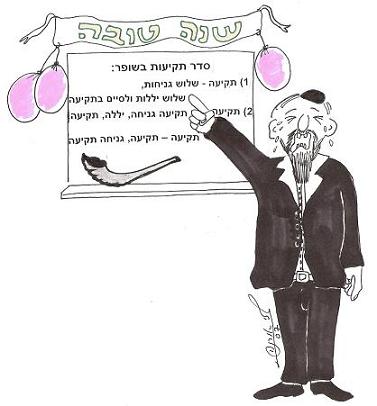 שנה טובה
סדר תקיעות בשופר:
1) תקיעה - שלוש גניחות,
שלוש יללות ולסיים בתקיעה
2) תקיעה תקיעה גניחה, יללה, תקיעה
תקיעה – תקיעה, גניחה תקיעה